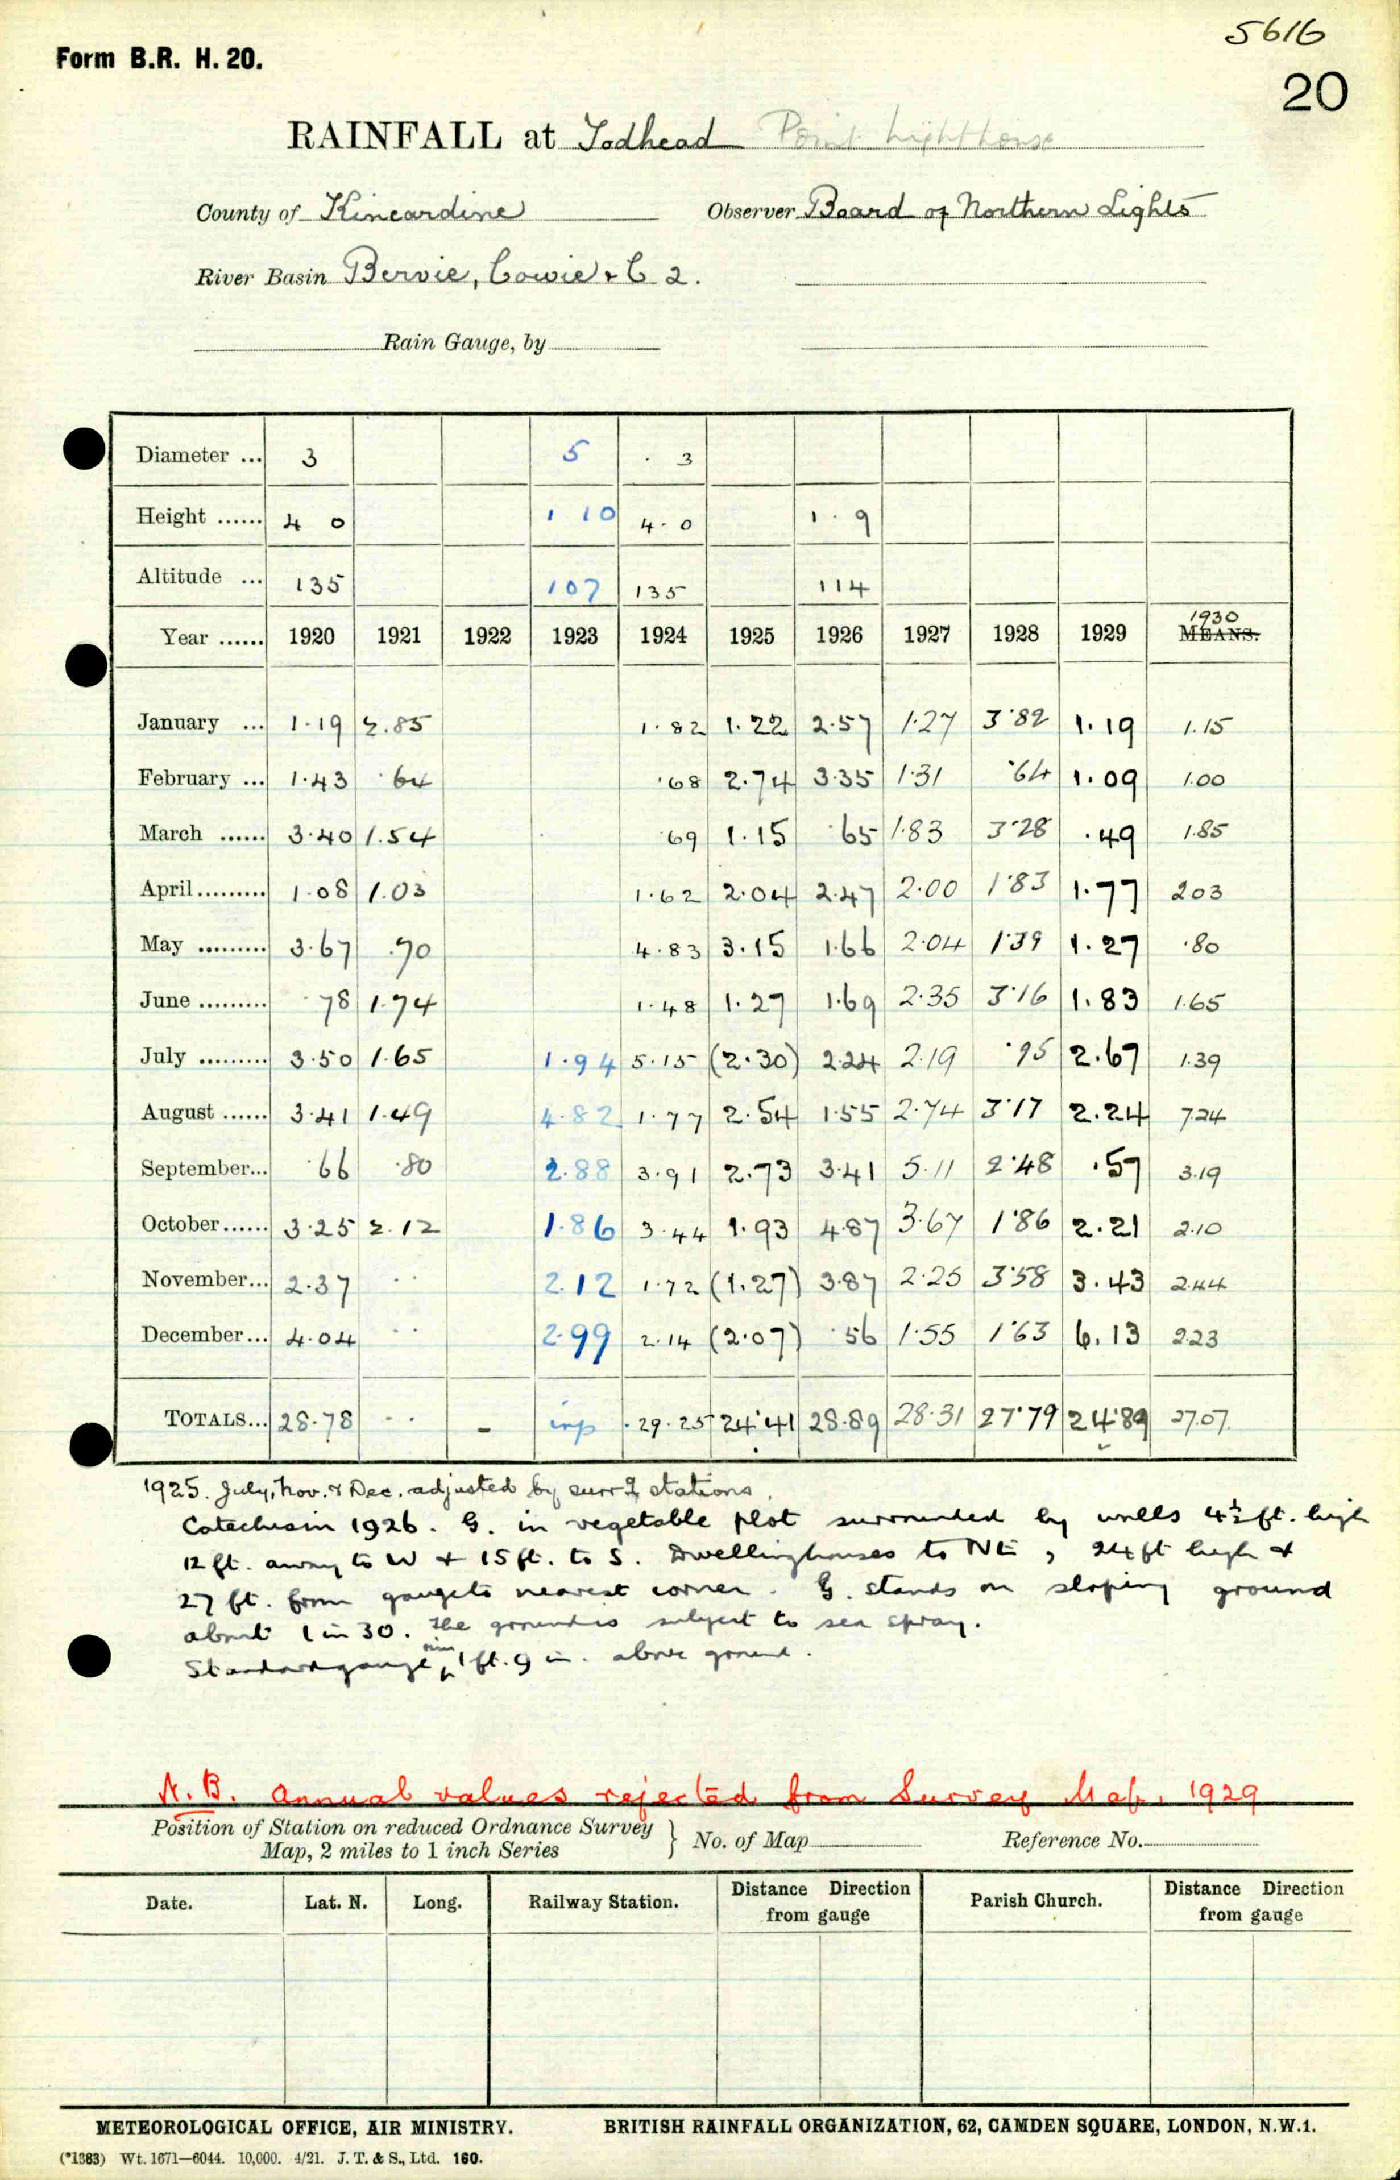 5616
Form B.R. H. 20.
20
RAINFALL at Todhead Point Lighthouse
County of Kincardine Observer Board of Northern Lights
River Basin Bervie, Cowie & C 2.
Rain Gauge, by
Diameter ... 3 5 3
Height ...... 4 0 1 10 4·0 1·9
Altitude ... 135 107 135 114
Year ...... 1920 1921 1922 1923 1924 1925 1926 1927 1928 1929 1930 MEANS.
January ... 1·19 2.85 1·82 1.22 2·57 1·27 3·82 1.19 1.15
February ... 1·43 ·64 ·68 2.74 3·35 1·31 ·64 1.09 1.00
March ...... 3·40 1.54 69 1.15 65 1·83 3·28 .49 1.85
April ......... 1·08 1.03 1·62 2.04 2·47 2·00 1·83 1.77 203
May ......... 3·67 .70 4·83 3.15 1·66 2·04 1·39 1.27 ·80
June ......... 78 1.74 1·48 1.27 1·69 2·35 3·16 1.83 1·65
July ......... 3·50 1.65 1·94 5·15 (2·30) 2·24 2·19 ·95 2.67 1·39
August ...... 3·41 1.49 4·82 1·77 2.54 1·55 2·74 3·17 2.24 7.24
September... ·66 ·80 2.88 3·91 2.73 3·41 5·11 2·48 .57 3.19
October...... 3·25 2.12 1·86 3·44 1.93 4·87 3·67 1·86 2.21 2.10
November... 2·37 ·· 2.12 1·72 (1.27) 3·87 2·25 3·58 3.43 2.44
December... 4·04 ·· 2·99 2·14 (2·07) ·56 1·55 1·63 6.13 2.23
TOTALS... 28·78 ·· - inp ·29·25 24·41 28·89 28·31 27·79 24·89 27.07
1925. July, Nov. & Dec. adjusted by surrg stations.
Catechism 1926. G. in vegetable plot surrounded by walls 4½ ft. high
12 ft. away to W & 15 ft. to S. Dwellinghouses to NE, 24 ft high &
27 ft. from gauge to nearest corner. G. stands on sloping ground
about 1 in 30. The ground is subject to sea spray.
Standard gauge, rim 1 ft. 9 in. above ground.
N.B. Annual values rejected from Survey Map. 1929
Position of Station on reduced Ordnance Survey
Map, 2 miles to 1 inch Series } No. of Map Reference No.
Date. Lat. N. Long. Railway Station. Distance Direction from gauge Parish Church. Distance Direction from gauge
METEOROLOGICAL OFFICE, AIR MINISTRY. BRITISH RAINFALL ORGANIZATION, 62, CAMDEN SQUARE, LONDON, N.W.1.
(*1383) Wt. 1671—6044. 10,000. 4/21. J. T. & S., Ltd. 160.